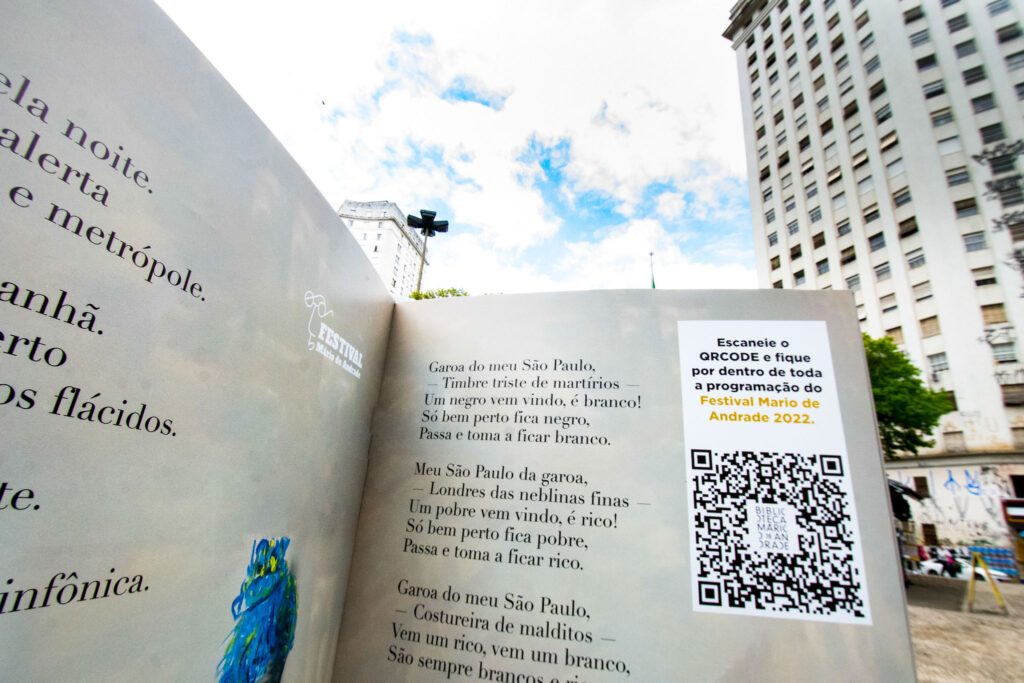 ela noite.
alerta
e metrópole.
anhã.
erto
os flácidos.
te.
infônica.
FESTIVAL
Mário de Andrade
Garoa do meu São Paulo,
— Timbre triste de martírios —
Um negro vem vindo, é branco!
Só bem perto fica negro,
Passa e toma a ficar branco.
Meu São Paulo da garoa,
— Londres das neblinas finas —
Um pobre vem vindo, é rico!
Só bem perto fica pobre,
Passa e toma a ficar rico.
Garoa do meu São Paulo,
— Costureira de malditos —
Vem um rico, vem um branco,
São sempre brancos e ri
Escaneie o
QRCODE e fique
por dentro de toda
a programação do
Festival Mario de
Andrade 2022.
BIBLIO
TECA
MÁRIO
DE AN
DRADE